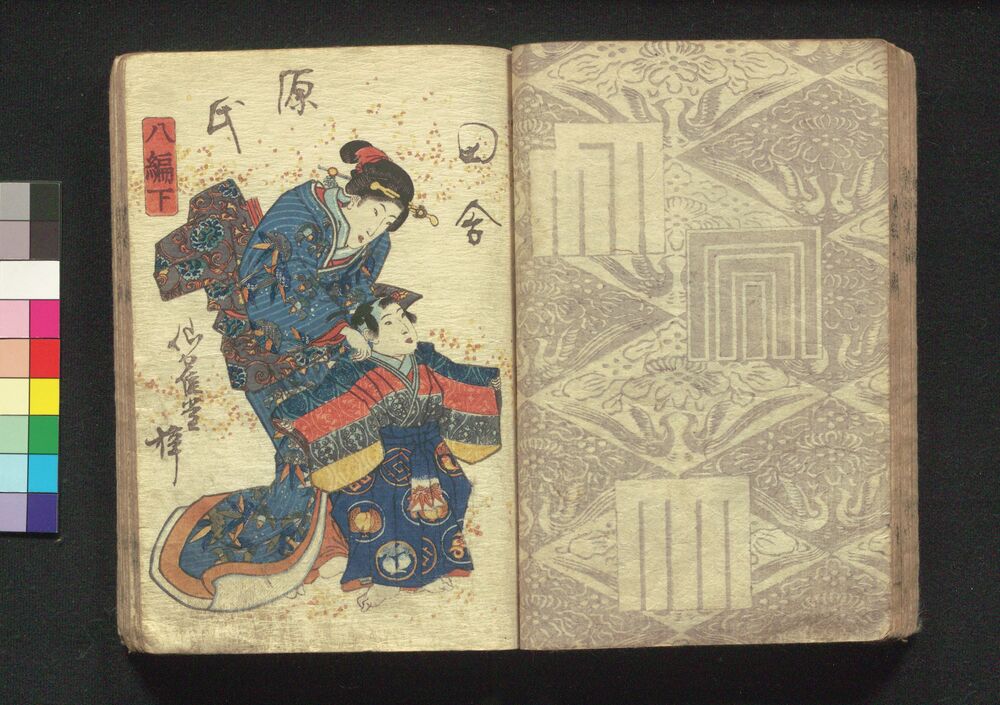 田舎
源
氏
八編下
仙鶴堂
梓